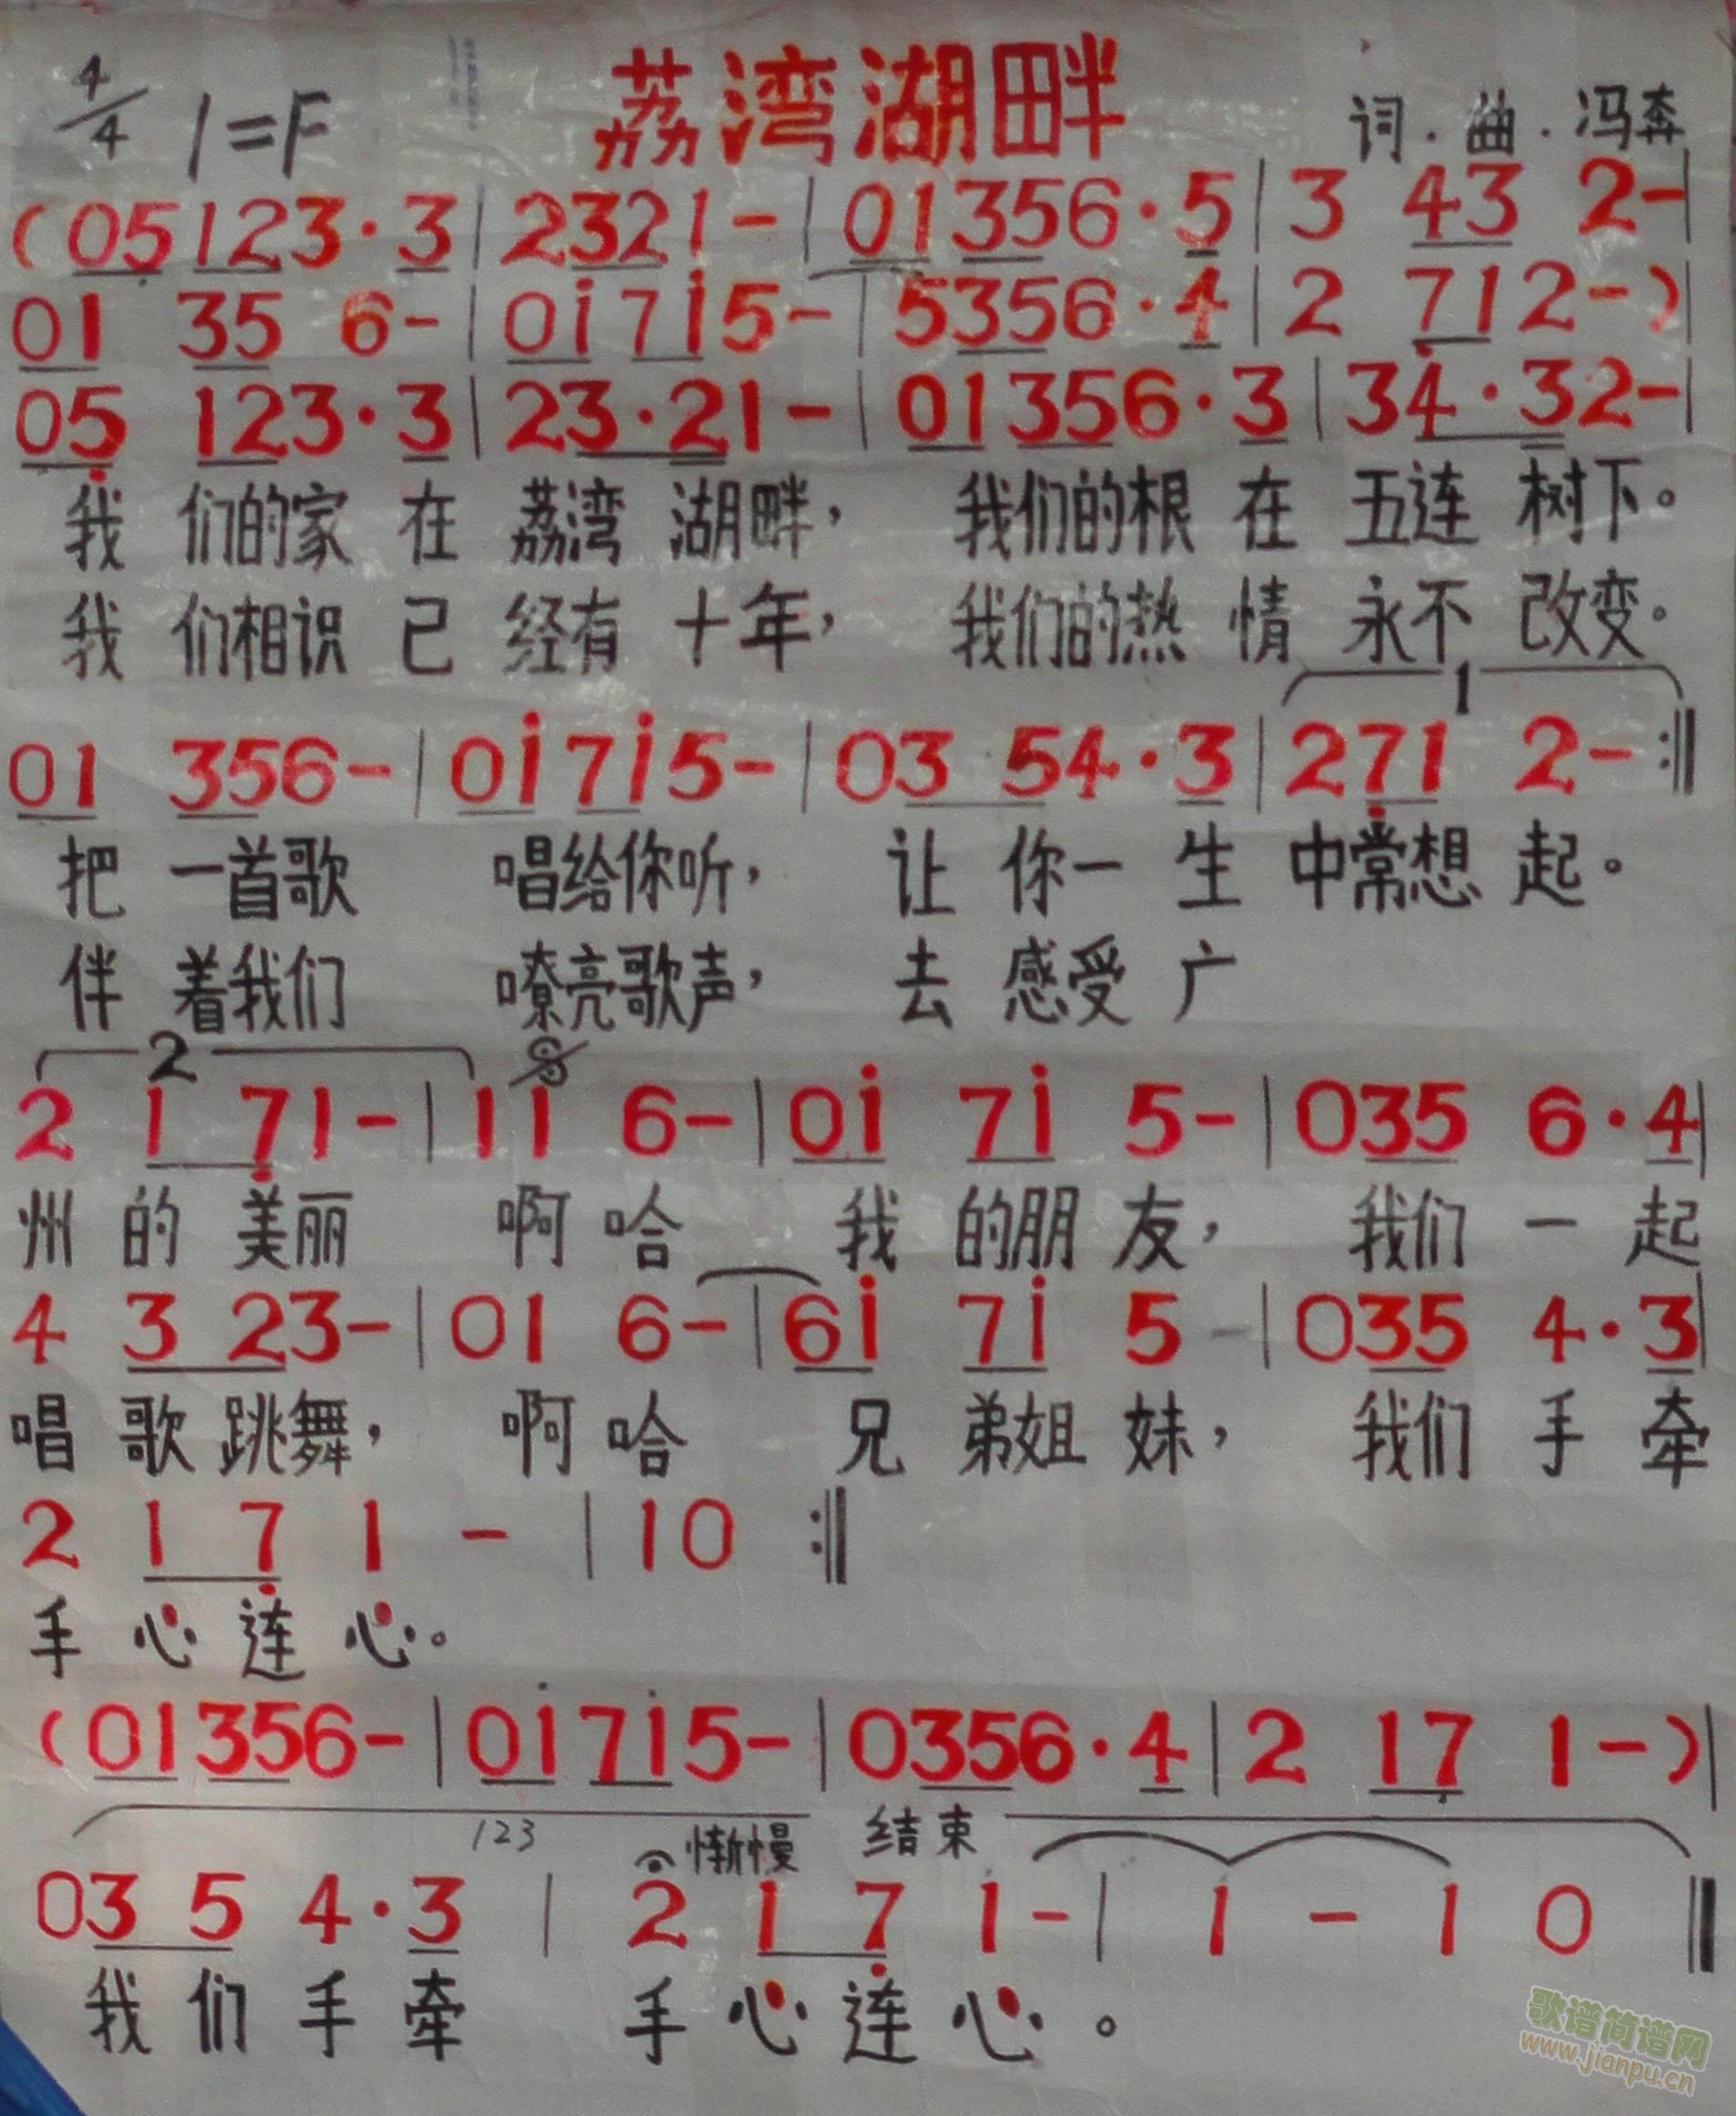 荔湾湖畔
4/4 1=F 词.曲.冯奔
(05123·3|2321-|01356·5|3 43 2-|
01 35 6-|01715-|5356·4|2 712-)
05 123·3|23·21-|01356·3|34·32-|
我们的家在荔湾湖畔，我们的根在五连树下。
我们相识已经有十年，我们的热情永不改变。
1
01 356-|01715-|03 54·3|271 2-:‖
把一首歌 唱给你听，让你一生中常想起。
伴着我们 嘹亮歌声，去感受广
2
2 1 71-|11 6-|01 71 5-|035 6·4|
州的美丽 啊哈 我的朋友，我们一起
4 3 23-|01 6-|61 71 5-|035 4·3|
唱歌跳舞，啊哈 兄弟姐妹，我们手牵
2 1 7 1 -|10 :‖
手心连心。
(01356-|01715-|0356·4|2 17 1-)|
123 渐慢 结束
03 5 4·3 | 2 1 7 1-| 1 - 1 0 ‖
我们手牵 手心连心。
歌谱简谱网
www.jianpu.cn